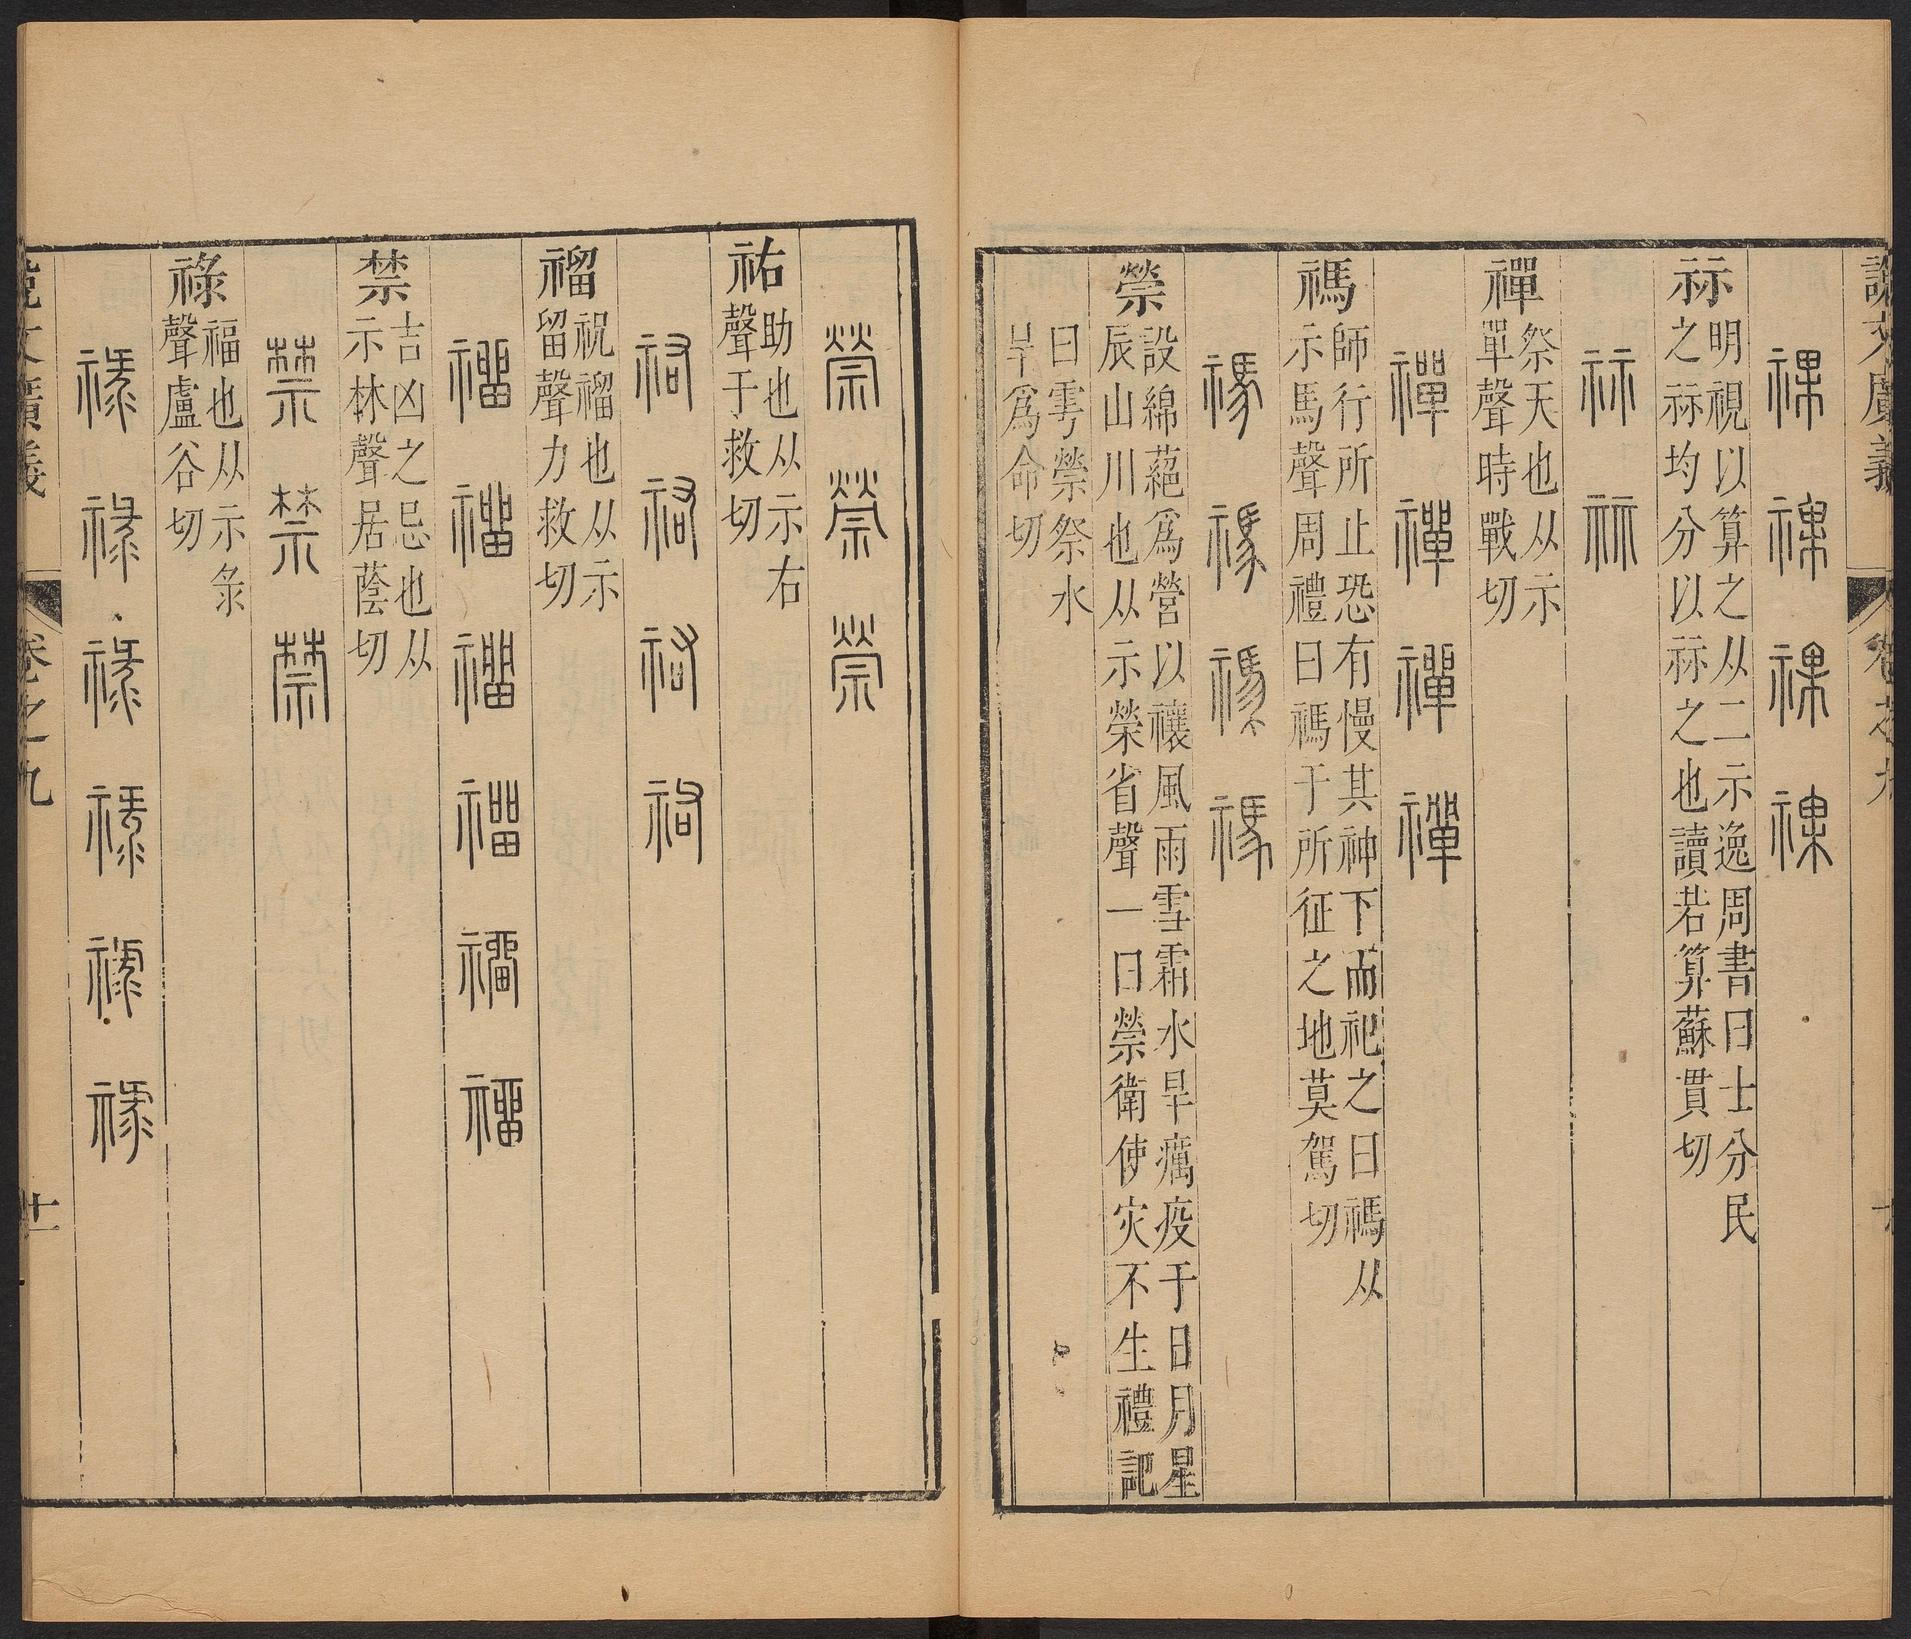 說文廣義
卷之九
祼祼祼祼
祘明視以算之从二示逸周書曰士分民
之祘均分以祘之也讀若算蘇貫切
祘祘
禪祭天也从示
單聲時戰切
禪禪禪禪
禡師行所止恐有慢其神下而祀之曰禡从
示馬聲周禮曰禡于所征之地莫駕切
禡禡禡禡
禜設綿蕝爲營以禳風雨雪霜水旱癘疫于日月星
辰山川也从示榮省聲一曰禜衛使灾不生禮記
曰雩禜祭水
旱爲命切
禜禜禜
祐助也从示右
聲于救切
祐祐祐祐
䄂祝䄂也从示
留聲力救切
䄂䄂䄂䄂䄂䄂
禁吉凶之忌也从
示林聲居蔭切
禁禁禁
祿福也从示彔
聲盧谷切
祿祿祿祿祿祿
說文廣義
卷之九
十一